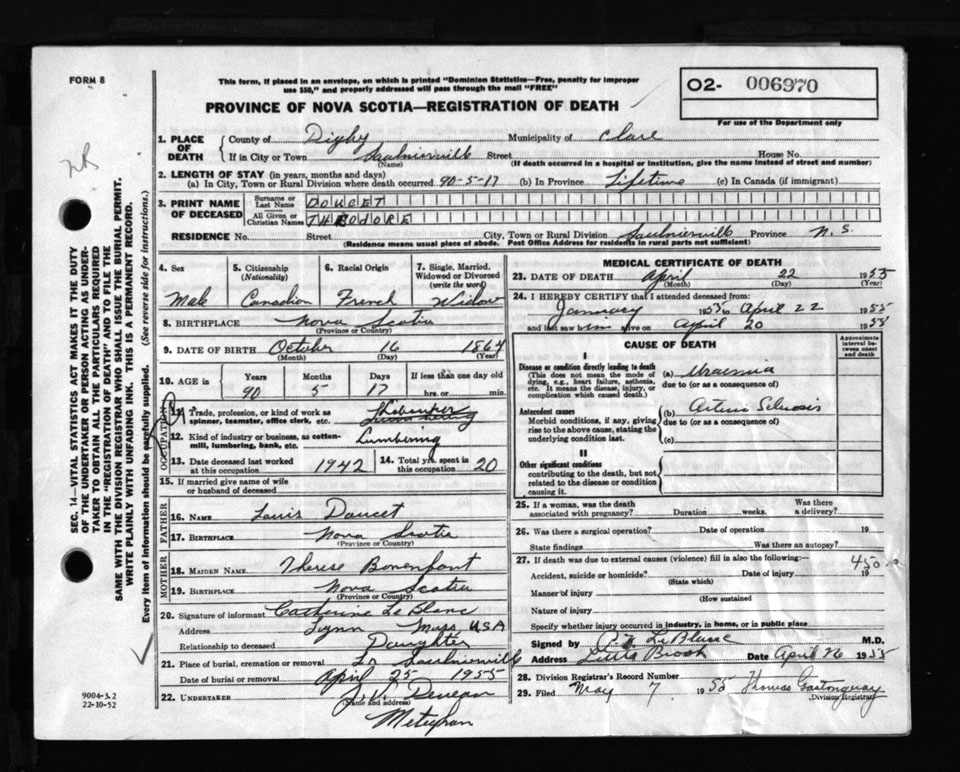 FORM 8
This form, if placed in an envelope, on which is printed "Dominion Statistics—Free, penalty for improper
use $50," and properly addressed will pass through the mail "FREE"
O2- 006970
For use of the Department only
PROVINCE OF NOVA SCOTIA—REGISTRATION OF DEATH
SEC. 14—VITAL STATISTICS ACT MAKES IT THE DUTY
OF THE UNDERTAKER OR PERSON ACTING AS UNDER-
TAKER TO OBTAIN ALL THE PARTICULARS REQUIRED
IN THE "REGISTRATION OF DEATH" AND TO FILE THE
SAME WITH THE DIVISION REGISTRAR WHO SHALL ISSUE THE BURIAL PERMIT.
WRITE PLAINLY WITH UNFADING INK. THIS IS A PERMANENT RECORD.
Every item of information should be carefully supplied. (See reverse side for instructions.)
1. PLACE OF DEATH County of Digby Municipality of Clare
If in City or Town Saulnierville Street House No.
(Name) (If death occurred in a hospital or institution, give the name instead of street and number)
2. LENGTH OF STAY (in years, months and days)
(a) In City, Town or Rural Division where death occurred 90-5-17 (b) In Province Lifetime (c) In Canada (if immigrant)
3. PRINT NAME OF DECEASED Surname or Last Name DOUCET
All Given or Christian Names THEODORE
RESIDENCE No. Street City, Town or Rural Division Saulnierville Province N. S.
(Residence means usual place of abode. Post Office Address for residents in rural parts not sufficient)
4. Sex Male
5. Citizenship (Nationality) Canadian
6. Racial Origin French
7. Single, Married, Widowed or Divorced (write the word) Widow
8. BIRTHPLACE Nova Scotia
(Province or Country)
9. DATE OF BIRTH October 16 1864
(Month) (Day) (Year)
10. AGE in Years 90 Months 5 Days 17 If less than one day old hrs. or min.
OCCUPATION
11. Trade, profession, or kind of work as spinner, teamster, office clerk, etc.
12. Kind of industry or business, as cotton-mill, lumbering, bank, etc. Lumbering
13. Date deceased last worked at this occupation 1942
14. Total yrs. spent in this occupation 20
15. If married give name of wife or husband of deceased
FATHER
16. NAME Louis Doucet
17. BIRTHPLACE Nova Scotia
(Province or Country)
MOTHER
18. MAIDEN NAME Therese Bonenfant
19. BIRTHPLACE Nova Scotia
(Province or Country)
20. Signature of informant Catherine Le Blanc
Address Lynn Mass U.S.A
Relationship to deceased Daughter
21. Place of burial, cremation or removal Saulnierville
Date of burial or removal April 25 1955
22. UNDERTAKER
(Name and address)
Meteghan
9004-3.2
22-10-52
MEDICAL CERTIFICATE OF DEATH
23. DATE OF DEATH April 22 1955
(Month) (Day) (Year)
24. I HEREBY CERTIFY that I attended deceased from:
January 1953 to April 22 1955
and last saw him alive on April 20 1955
CAUSE OF DEATH
Approximate interval between onset and death
I
Disease or condition directly leading to death
(This does not mean the mode of dying, e.g., heart failure, asthenia, etc. It means the disease, injury, or complication which caused death.)
(a) Uraemia
due to (or as a consequence of)
Antecedent causes
Morbid conditions, if any, giving rise to the above cause, stating the underlying condition last.
(b)
due to (or as a consequence of)
(c)
II
Other significant conditions
contributing to the death, but not related to the disease or condition causing it.
25. If a woman, was the death associated with pregnancy? Duration weeks. Was there a delivery?
26. Was there a surgical operation? Date of operation 19
State findings Was there an autopsy?
27. If death was due to external causes (violence) fill in also the following:—
450
Accident, suicide or homicide? Date of injury 19
(State which)
Manner of injury
(How sustained
Nature of injury
Specify whether injury occurred in industry, in home, or in public place
Signed by LeBlanc M.D.
Address Little Brook Date April 26 1955
28. Division Registrar's Record Number
29. Filed May 7 1955 Thomas Gastonguay
Division Registrar